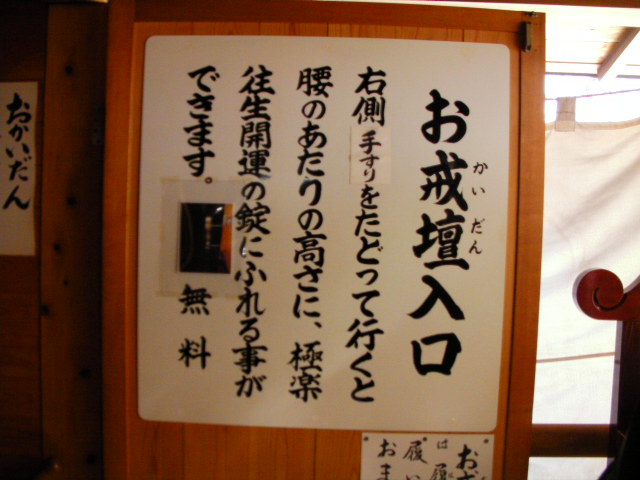 お戒壇入口
かいだん
右側手すりをたどって行くと
腰のあたりの高さに、極楽
往生開運の錠にふれる事が
できます。
無料
おかいだん